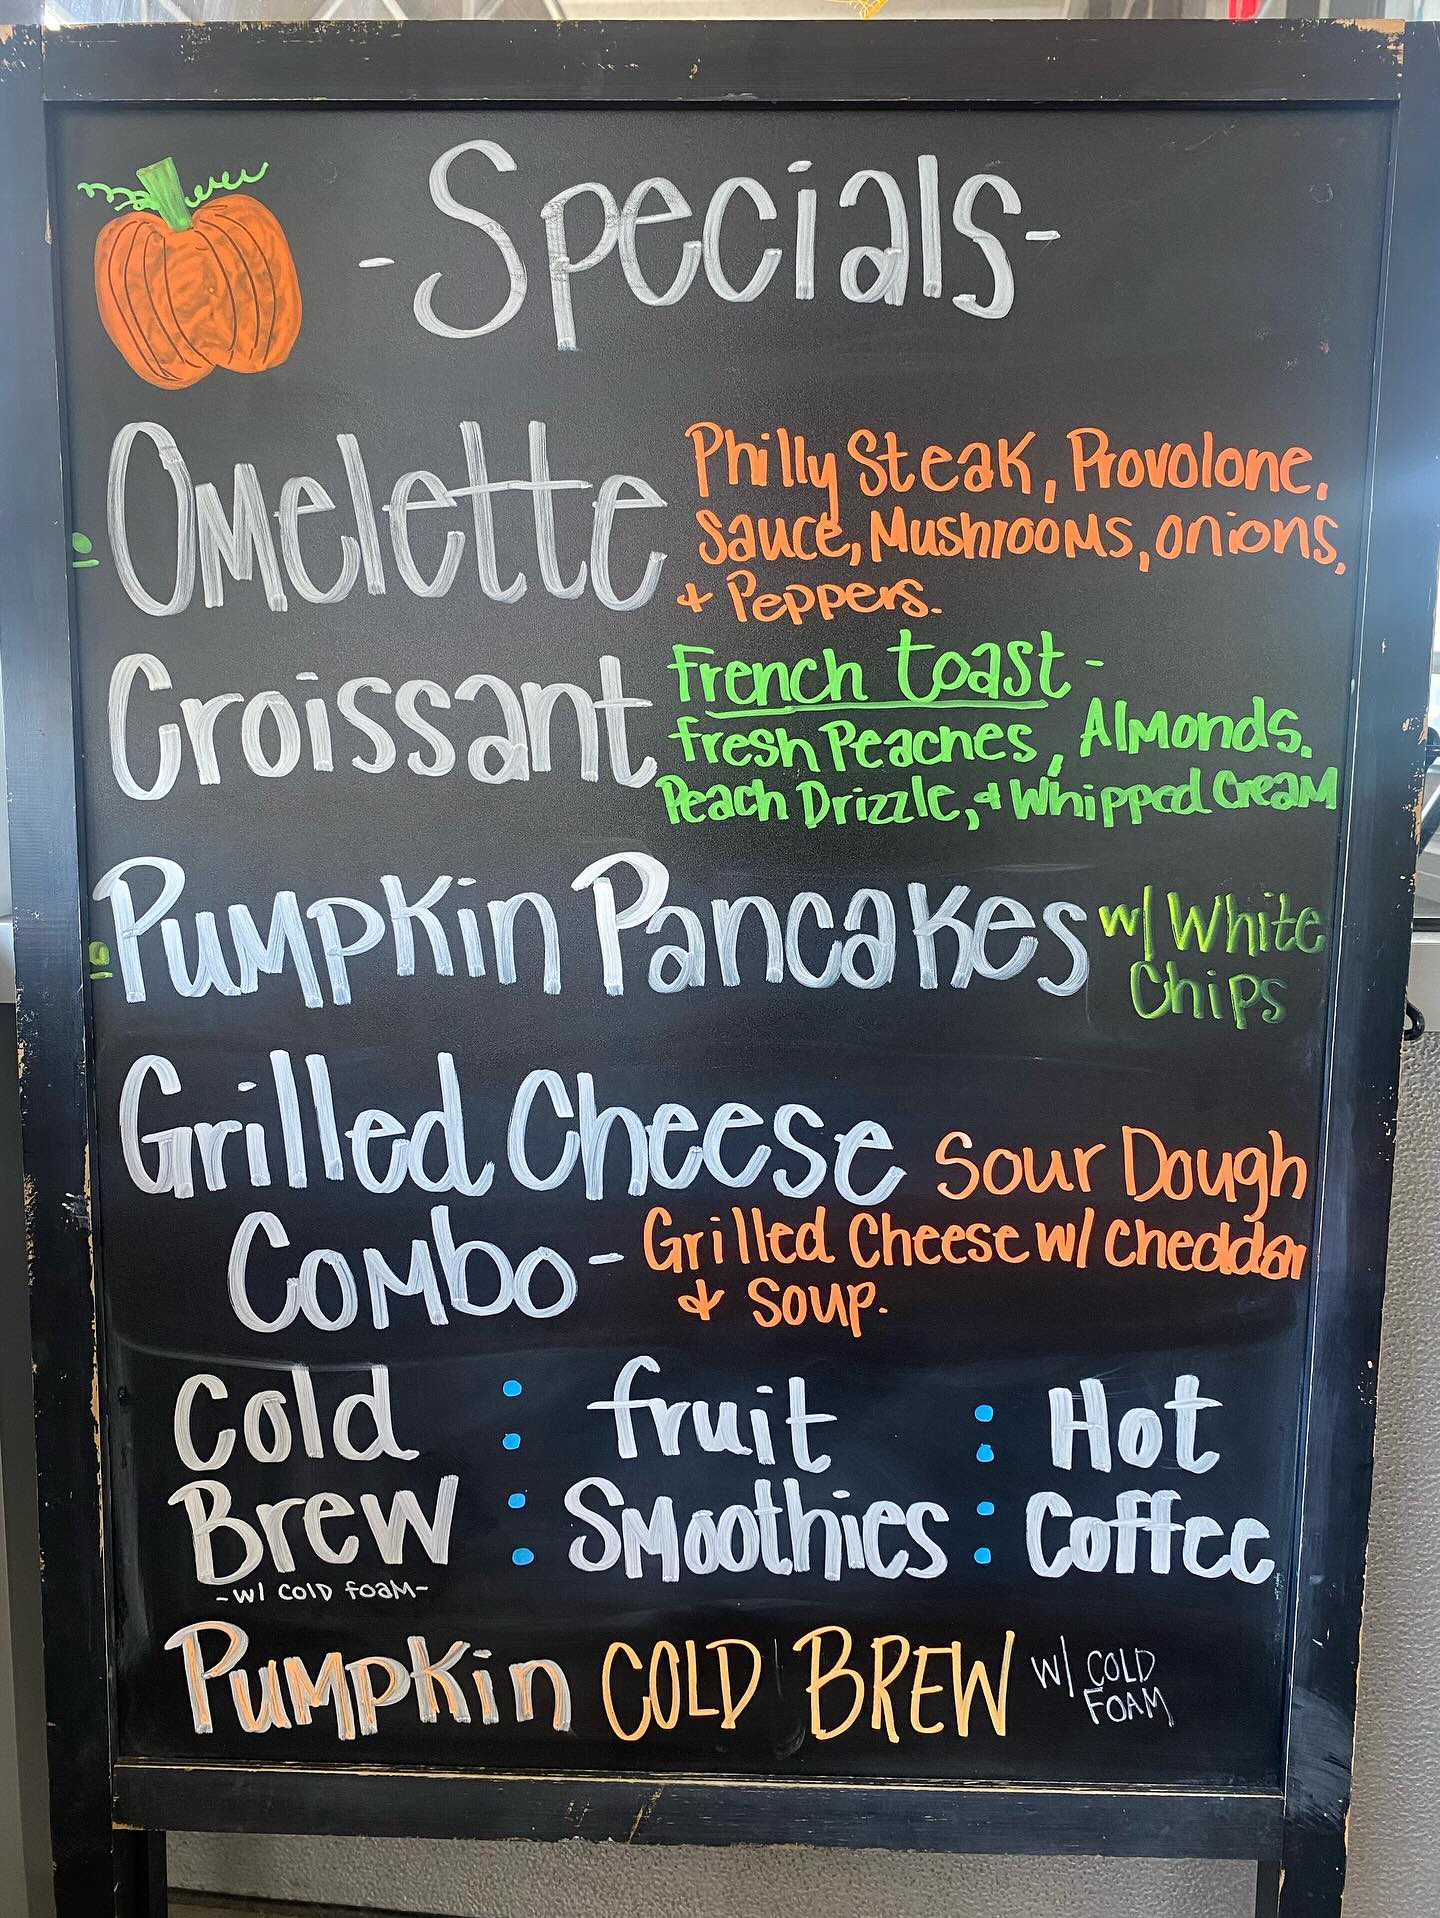 -Specials-
Omelette Philly Steak, Provolone,
Sauce, Mushrooms, onions,
& Peppers.
Croissant French toast -
fresh Peaches, Almonds.
Peach Drizzle, & Whipped Cream
Pumpkin Pancakes w/ White
Chips
Grilled Cheese Sour Dough
Combo - Grilled Cheese w/ Cheddar
& Soup.
Cold : fruit : Hot
Brew : Smoothies : Coffee
-w/ cold foam-
Pumpkin COLD BREW w/ COLD
FOAM